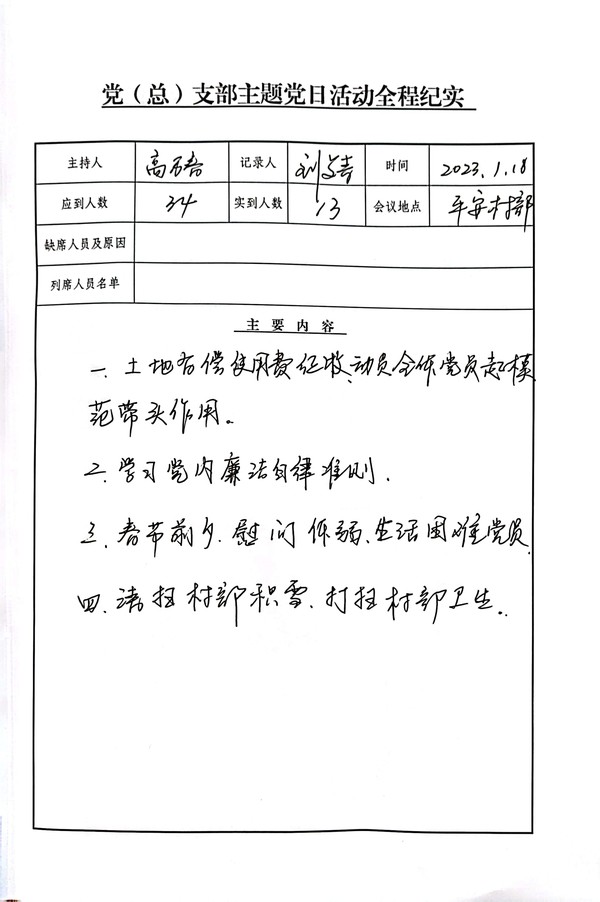 党（总）支部主题党日活动全程纪实
主持人 高 记录人 刘 时间 2023.1.18
应到人数 34 实到人数 13 会议地点 平安村部
缺席人员及原因
列席人员名单
主要内容
一、土地有偿使用费征收、动员全体党员起模
范带头作用。
二、学习党内廉洁自律准则.
三、春节前夕.慰问体弱、生活困难党员
四、清扫村部积雪.打扫村部卫生。